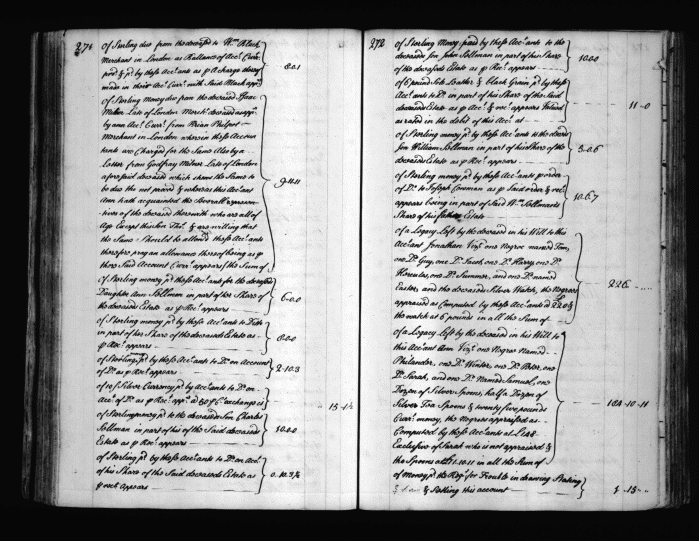 271
Of Sterling due from the deceased to Wm Black
Merchant in London as Ballance of Acct Curr
made in their Acct Curr with Said Black app
8.0.1
Of Sterling Money due from the deceased Isaac
Milner Late of London Mercht deceased as app
by ann Acct Curr from Brian Philpot
Merchant in London wherein these Accoun
tants are Charged for the Same Also by a
Letter from Godfrey Milner Late of London
aforesaid deceased which shews the Same to
be due the not paid & whereas this Accant
Ann hath acquainted the Several represen
tatives of the deceased therewith who are all of
Age Except this Son Thos & are willing that
the Same Should be allowed these Accants
therefore pray an allowance thereof being as p
there Said Account Curr appears the Sum of
9.11.11
Of Sterling money pd by these Accants for the deceased
Daughter Ann Sollman in part of her Share of
the deceaseds Estate as p Rect appears
6.0.0
Of Sterling money pd by these Accants to
in part of her Share of the deceaseds Estate as
p Rect appears
8.0.0
Of Sterling pd by these Accants to Do on Account
of Do as p Rect appears
2.10.3
Of 10/ Silver Currency pd by Accants to Do on
Acct of Do as p Rect app
15.1½
Of Sterling money pd to the deceaseds Son Charles
Sollman in part of his of the Said deceaseds
Estate as p Rect appears
10.0.0
Of Sterling pd by these Accants to Do on Acct
of his Share of the Said deceaseds Estate as
p rect Appears
0.10.3½
272
Of Sterling Money paid by these Accants to the
deceaseds Son John Sollman in part of his Share
of the deceaseds Estate as p Rect appears
10.0.0
Of 6 pound Sole Leather & black Grain pd by these
Accants to Do in part of his Share of the Said
deceaseds Estate as p Acct & rect appears
as raised in the debit of this Acct at
11.0
Of Sterling money pd by these Accants to the deceds
Son William Sollman in part of his Share of the
deceaseds Estate as p Rect appears
3.0.6
Of Sterling money pd by these Accants p order
of Do to Joseph Coleman as p Said order & rect
appears being in part of Said Wm Sollmans
Share of his father Estate
10.6.7
Of a Legacy Left by the deceased in his Will to this
Accant Jonathan Vizt one Negroe named Tom,
one Do Guy, one Do Jack, one Do Harry, one Do
Hercules, one Do Summer, and one Do named
Easter, and the deceaseds Silver Watch, the Negroes
appraised as Computed by these Accants at £220 &
the watch at 6 pounds in all the Sum of
226
Of a Legacy Left by the deceased in his Will to
this Accant Ann Vizt one Negroe Named
Philander, one Do Winter, one Do Peter, one
Do Sarah, and one Do Named Samuel, one
Dozen of Silver Spoons, half a Dozen of
Silver Tea Spoons & twenty five pounds
Curr money, the Negroes appraised as
Computed by these Accants at
Exclusive of Sarah who is not appraised &
the Spoons at £11.10.11 in all the Sum of
184.10.11
Of money pd the Regr for Trouble in drawing Stating
& Setling this account
1.15